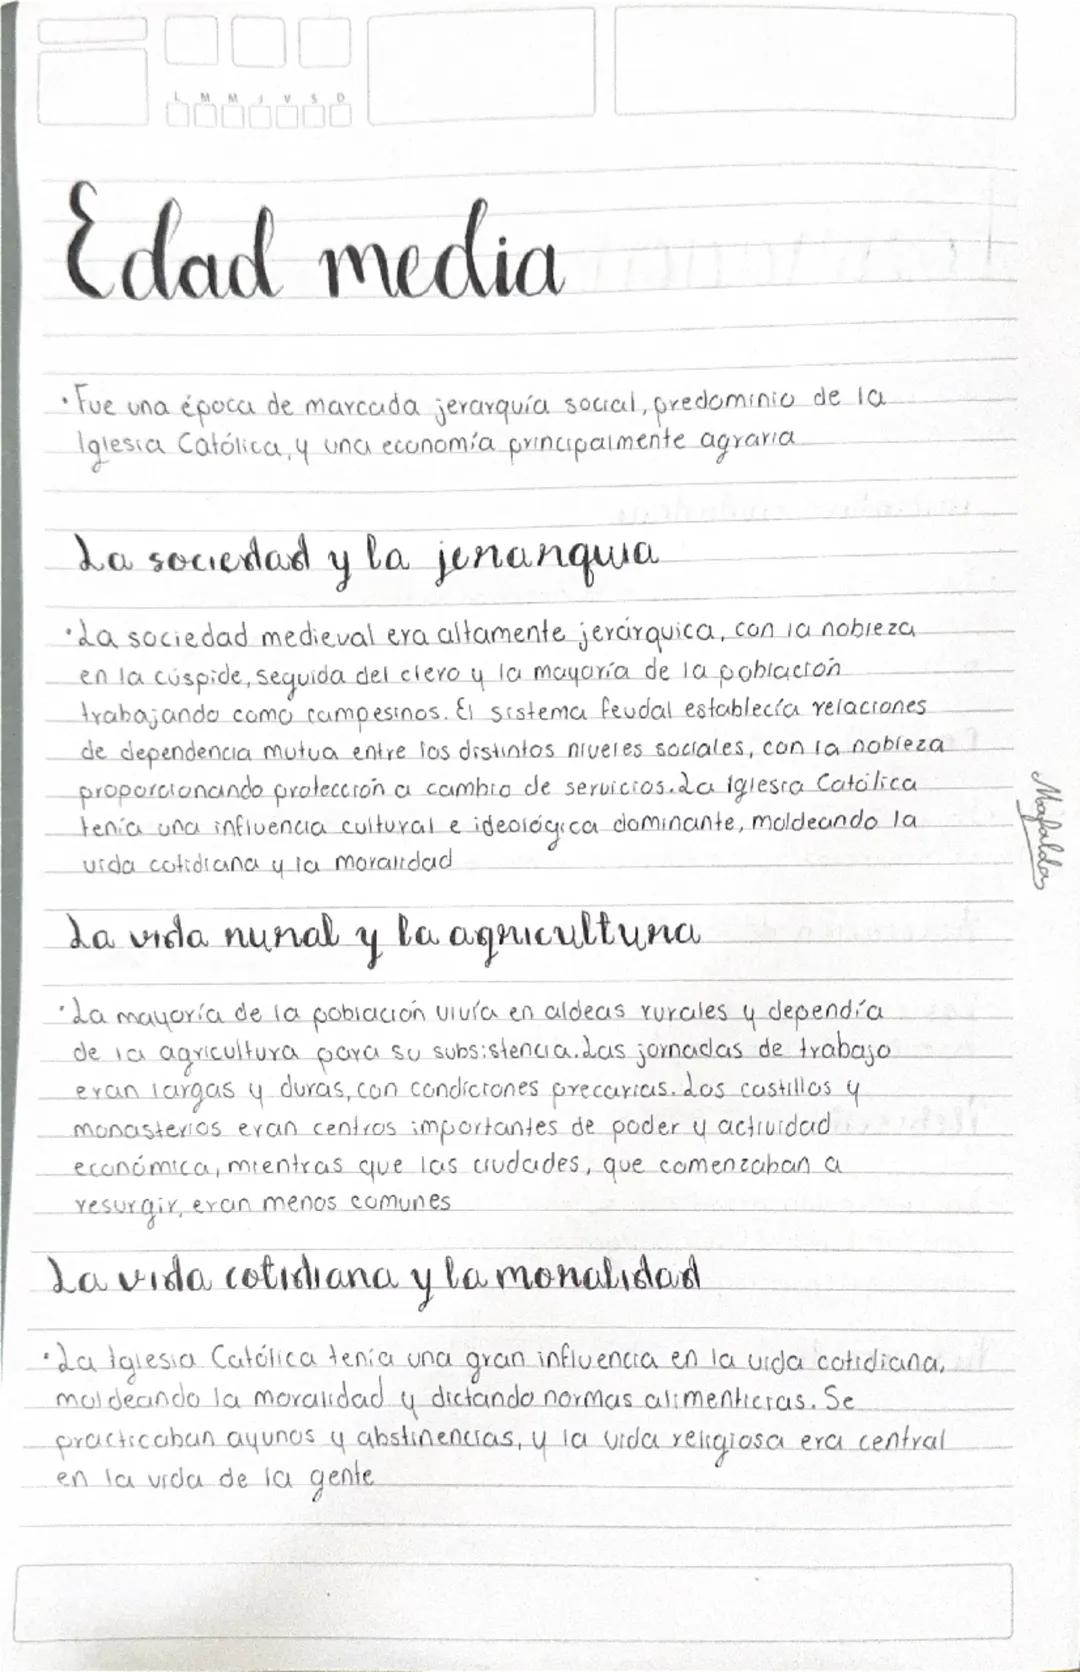 L M M J V S D
Edad media
· Fue una época de marcada jerarquía social, predominio de la
Iglesia Católica, y una economía principalmente agraria
La sociedad y la jerarquia
· La sociedad medieval era altamente jerárquica, con la nobleza
en la cúspide, seguida del clero y la mayoría de la población
trabajando como campesinos. El sistema feudal establecía relaciones
de dependencia mutua entre los distintos niveles sociales, con la nobleza
proporcionando protección a cambio de servicios. La iglesia Católica
tenía una influencia cultural e ideológica dominante, moldeando la
vida cotidiana y la moralidad
La vida rural y la agricultura
· La mayoría de la población vivía en aldeas rurales y dependía
de la agricultura para su subsistencia. Las jornadas de trabajo
eran largas y duras, con condiciones precarias. Los castillos y
monasterios eran centros importantes de poder y actividad
económica, mientras que las ciudades, que comenzaban a
resurgir, eran menos comunes
La vida cotidiana y la moralidad
· La Iglesia Católica tenía una gran influencia en la vida cotidiana,
moldeando la moralidad y dictando normas alimenticias. Se
practicaban ayunos y abstinencias, y la vida religiosa era central
en la vida de la gente
Mafaldas